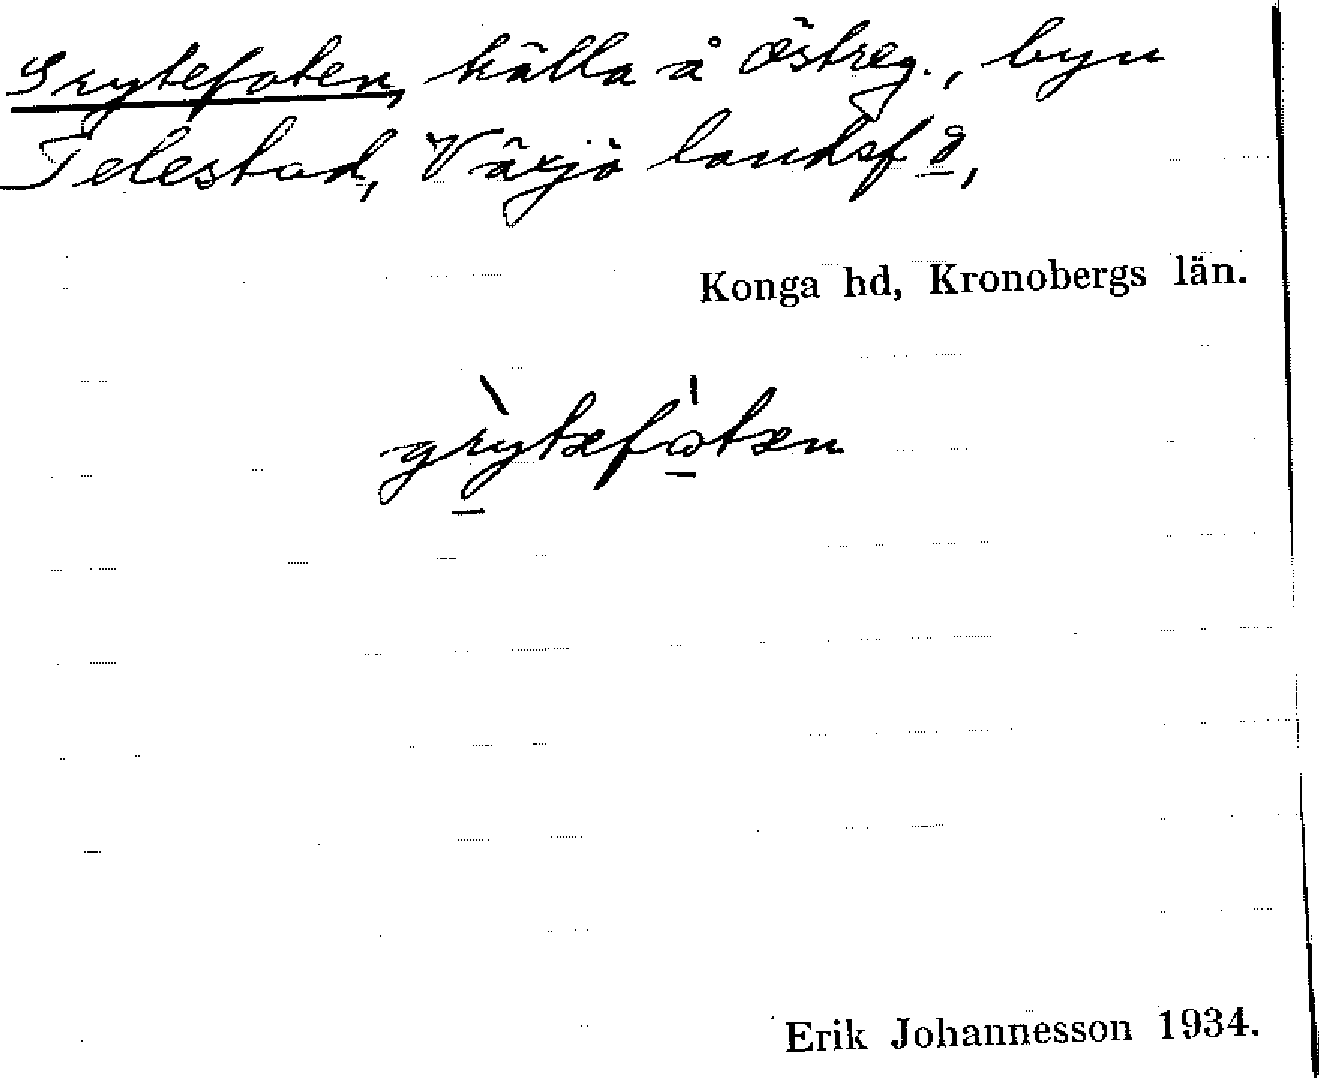 Grytefoten, källa å Östreg., byn
Telestad, Växjö landsf d,
Konga hd, Kronobergs län.
grytefoten
Erik Johannesson 1934.